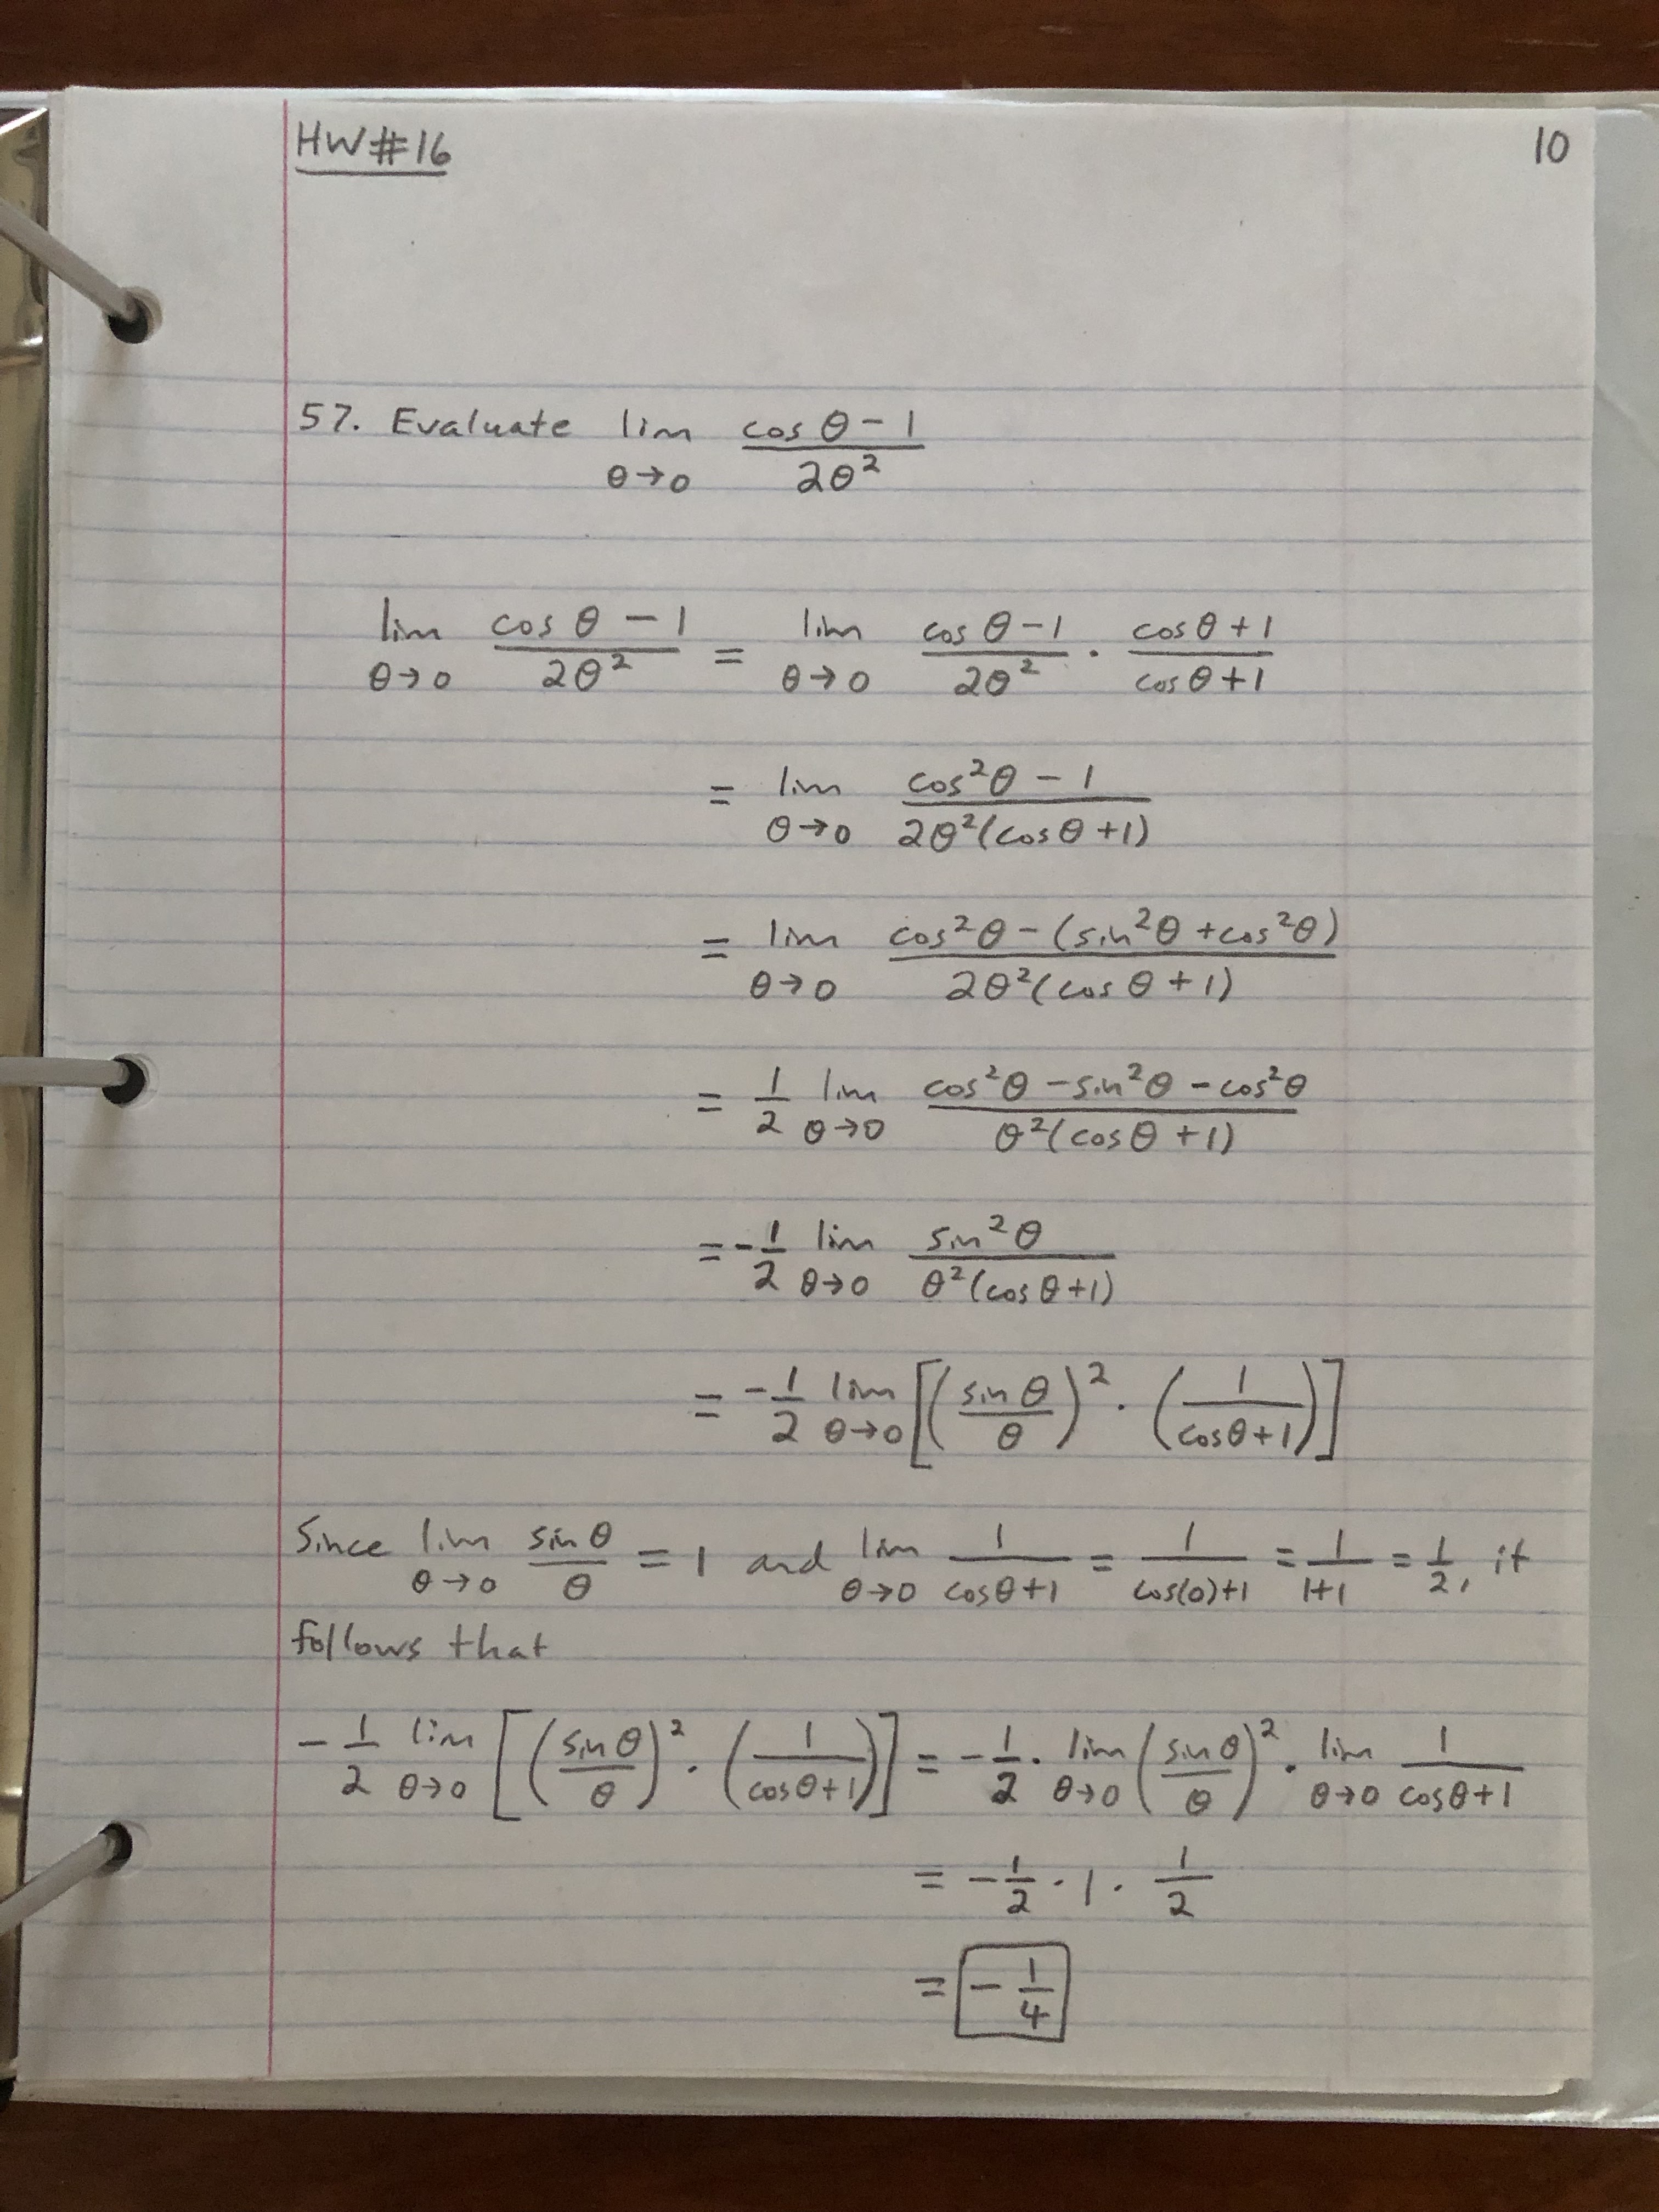 HW#16 10
57. Evaluate lim θ→0 (cos θ - 1)/(2θ²)
lim θ→0 (cos θ - 1)/(2θ²) = lim θ→0 (cos θ - 1)/(2θ²) · (cos θ + 1)/(cos θ + 1)
= lim θ→0 (cos²θ - 1)/(2θ²(cos θ + 1))
= lim θ→0 (cos²θ - (sin²θ + cos²θ))/(2θ²(cos θ + 1))
= 1/2 lim θ→0 (cos²θ - sin²θ - cos²θ)/(θ²(cos θ + 1))
= -1/2 lim θ→0 (sin²θ)/(θ²(cos θ + 1))
= -1/2 lim θ→0 [(sin θ/θ)² · (1/(cos θ + 1))]
Since lim θ→0 sin θ/θ = 1 and lim θ→0 1/(cos θ + 1) = 1/(cos(0)+1) = 1/(1+1) = 1/2, it
follows that
-1/2 lim θ→0 [(sin θ/θ)² · (1/(cos θ + 1))] = -1/2 · lim θ→0 (sin θ/θ)² · lim θ→0 1/(cos θ + 1)
= -1/2 · 1 · 1/2
= -1/4